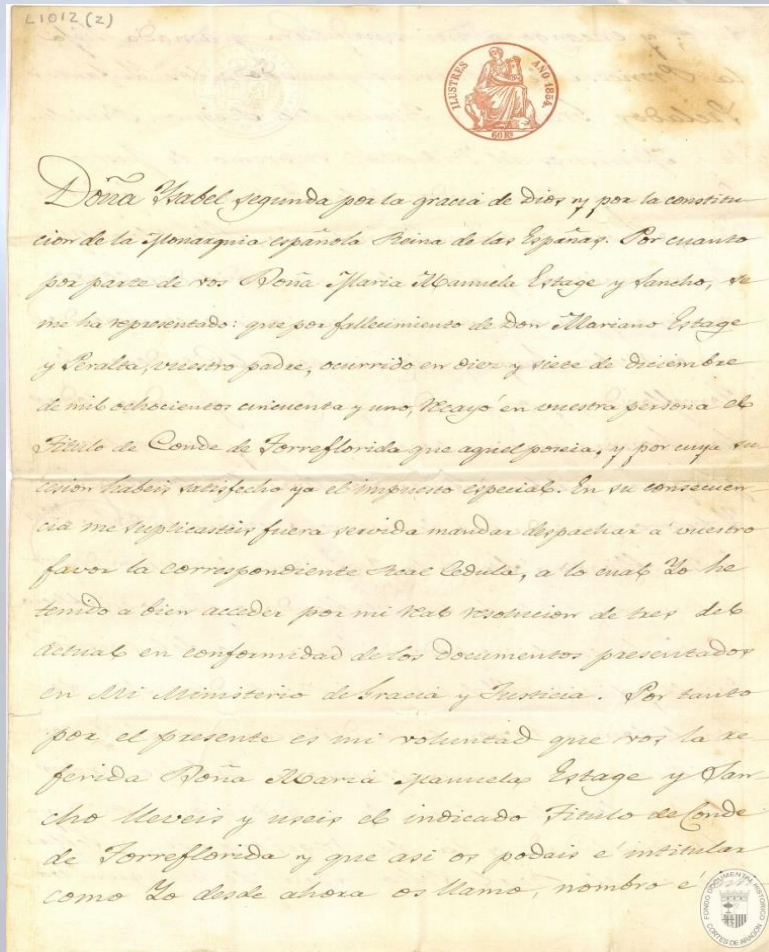 L1012(2)
ILUSTRES AÑO 1854.
60 Rs
Doña Ysabel segunda por la gracia de Dios y por la constitu
cion de la Monarquia española Reina de las Españas. Por cuanto
por parte de vos Doña Maria Manuela Estage y Sancho, se
me ha representado: que por fallecimiento de Don Mariano Estage
y Peralta, vuestro padre, ocurrido en diez y siete de diciembre
de mil ochocientos cincuenta y uno, recayó en vuestra persona el
Titulo de Conde de Torreflorida que aquel poseia, y por cuya su
cesion habeis satisfecho ya el impuesto especial. En su consecuen
cia me suplicasteis fuera servida mandar despachar á vuestro
favor la correspondiente Real Cedula, a lo cual Yo he
tenido a bien acceder por mi Real resolucion de tres del
actual en conformidad de los documentos presentados
en Mi Ministerio de Gracia y Justicia. Por tanto
por el presente es mi voluntad que vos la re
ferida Doña Maria Manuela Estage y San
cho lleveis y useis el indicado Titulo de Conde
de Torreflorida y que asi os podais é intitular
como Yo desde ahora os llamo, nombro é
FONDO DOCUMENTAL HISTÓRICO
CORTES DE ARAGÓN